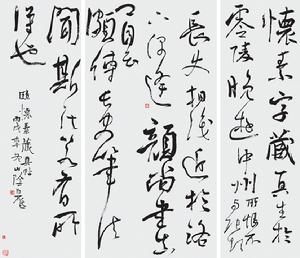 懷素字藏真生於
零陵晚遊中州所恨不與張顛
長史相識近於洛
下偶逢顏尚書真
卿自云頗傳長史筆法
聞斯八法若有所
得也
臨懷素藏真帖
丙戌年